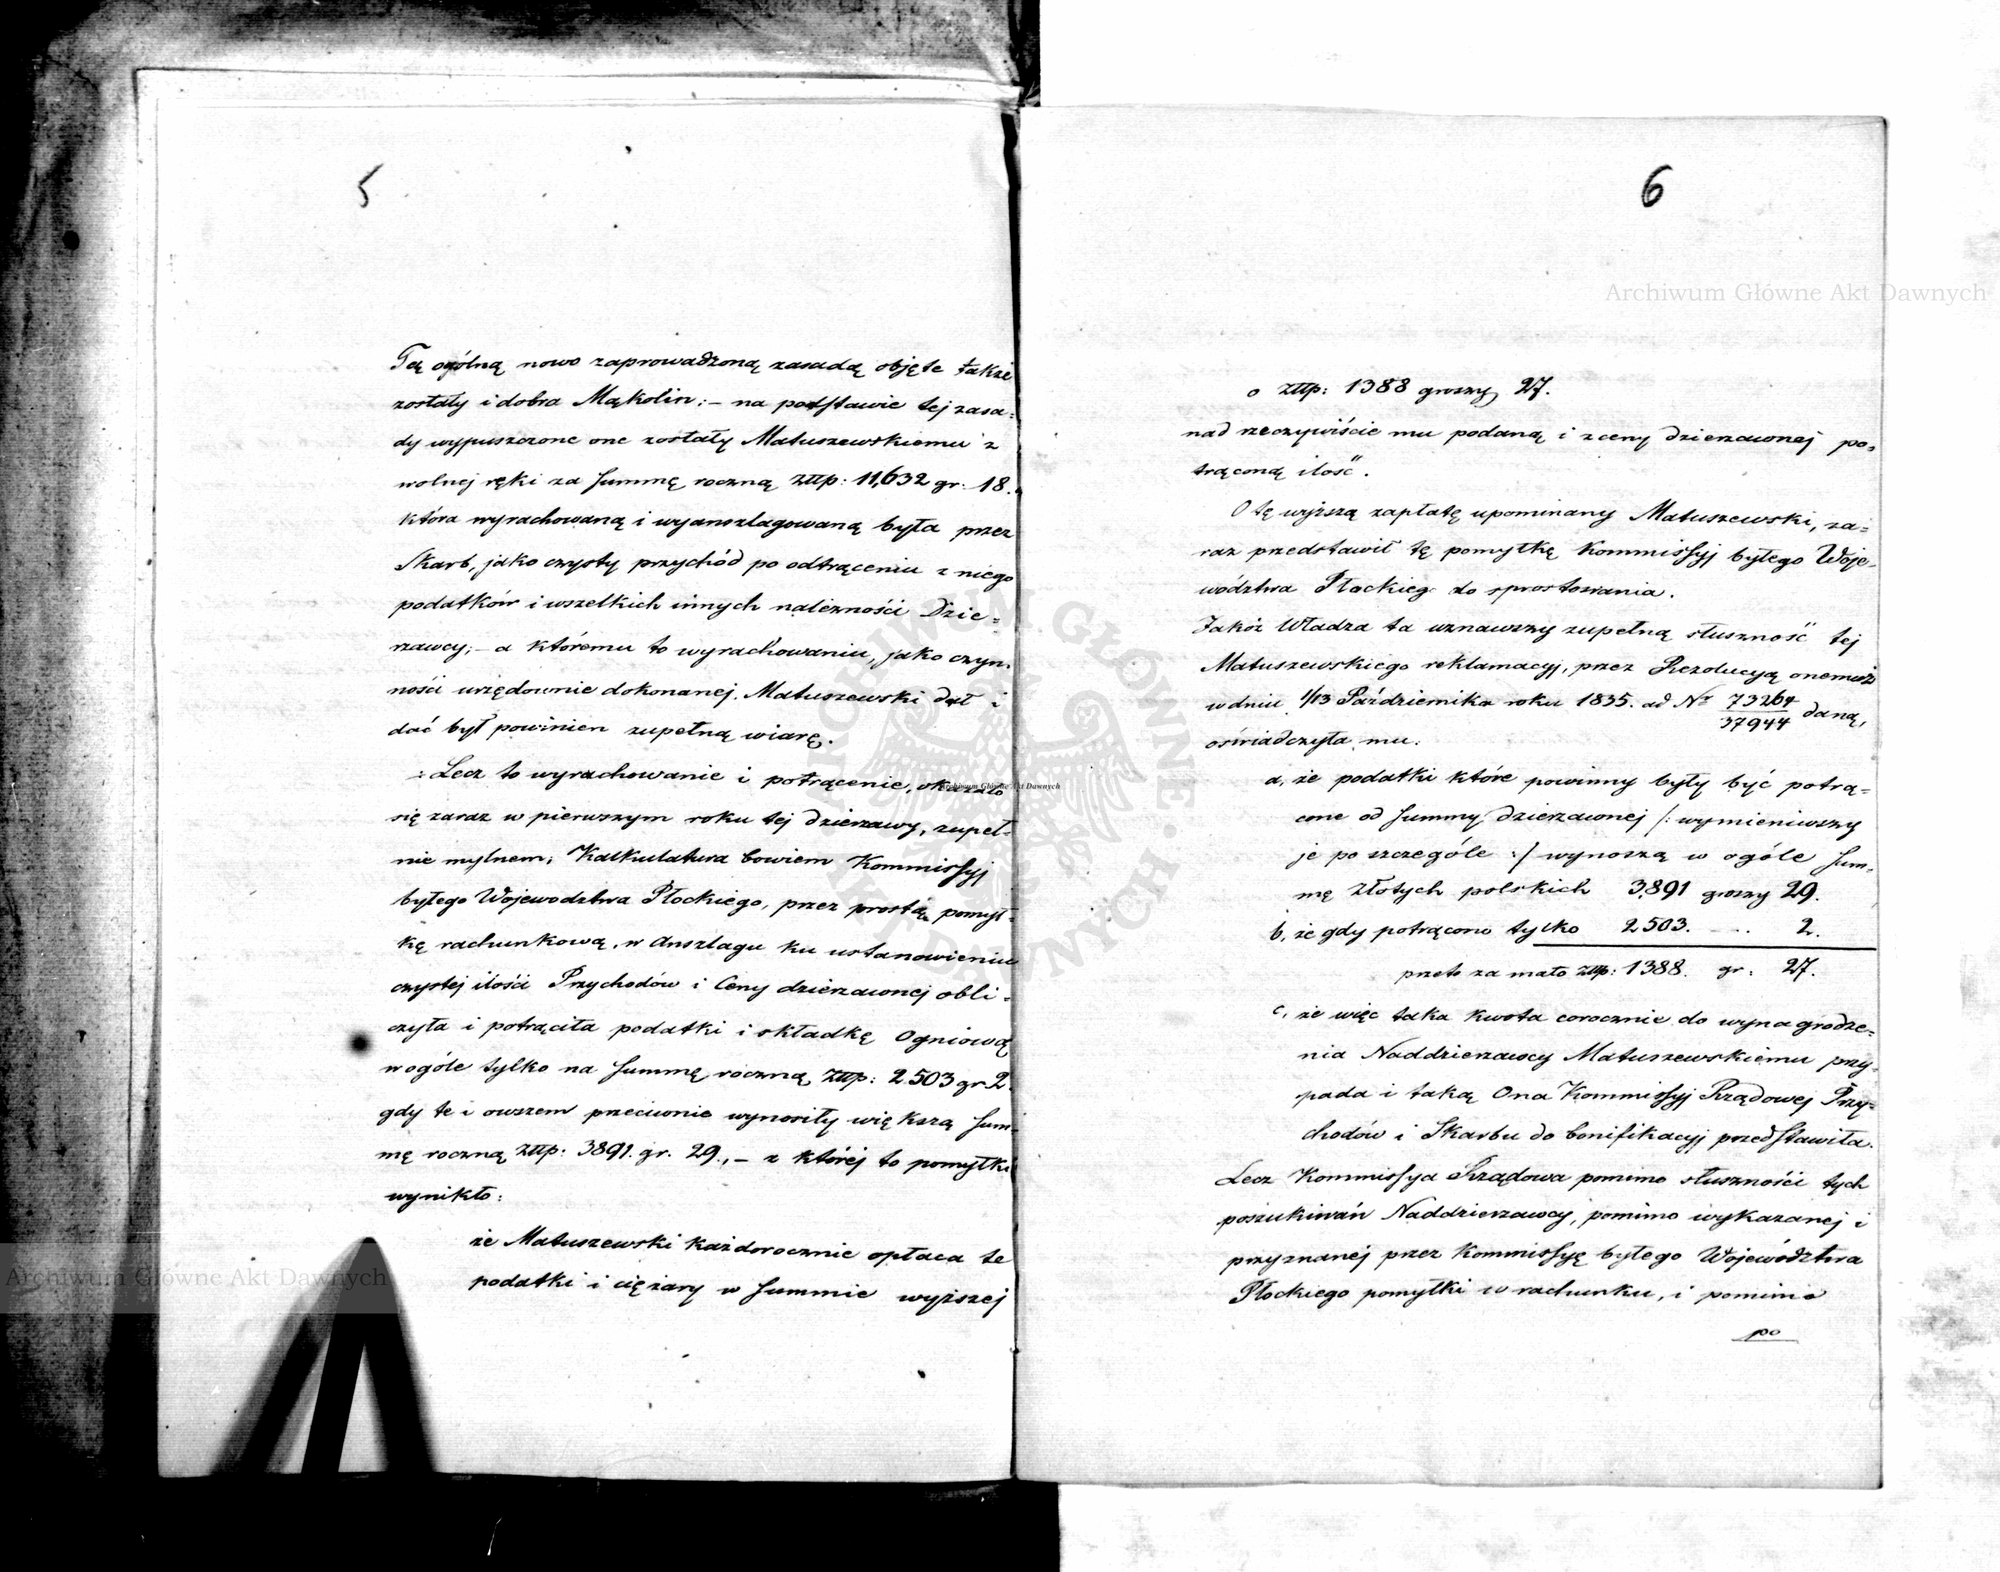 5
Tą ogólną nowo zaprowadzoną zasadą objęte także
zostały i dobra Mąkolin: – na podstawie tej zasa=
dy wypuszczone one zostały Matuszewskiemu z
wolnej ręki za Summę roczną Złłp: 11,632 gr: 18.
która wyrachowaną i wyanszlagowaną była przez
Skarb, jako czysty przychód po odtrąceniu z niego
podatków i wszelkich innych należności Dzie=
rzawcy; – a któremu to wyrachowaniu, jako czyn=
ności urzędownie dokonanej, Matuszewski dał i
dać był powinien zupełną wiarę.
Lecz to wyrachowanie i potrącenie, okazało
się zaraz w pierwszym roku tej dzierzawy, zupeł=
nie mylnem; Kalkulatura bowiem Kommissyj
byłego Wojewodztwa Płockiego, przez prostą pomył=
kę rachunkową, w Anszlagu ku ustanowieniu
czystej ilości Przychodów i Ceny dzierzawnej obli=
czyła i potrąciła podatki i składkę Ogniową
w ogóle tylko na Summę roczną Złłp: 2503 gr 2.
gdy te i owszem przeciwnie wynosiły większą Sum=
mę roczną Złłp: 3891. gr. 29., – z której to pomyłki
wynikło:
że Matuszewski każdorocznie opłaca te
podatki i ciężary w Summie wyższej
6
o Złłp: 1388 groszy 27.
nad rzeczywiście mu podaną i z ceny dzierzawnej po=
trąconą ilość.
O tę wyższą zapłatę upominany Matuszewski, za=
raz przedstawił tę pomyłkę Kommissyj byłego Woje=
wództwa Płockieg do sprostowania.
Jakóż Władza ta uznawszy zupełną słuszność tej
Matuszewskiego reklamacyj, przez Rezolucyą onemuż
w dniu 1/13 Października roku 1835. ad Nr 73264/37944 daną,
oświadczyła mu:
a, że podatki które powinny były być potrą=
cone od Summy dzierzawnej /: wymieniwszy
je po szczególe :/ wynoszą w ogóle Sum=
mę złotych polskich 3,891 groszy 29.
b, że gdy potrącono tylko 2503. – .. 2.
przeto za mało złłp: 1388. gr: 27.
c, że więc taka kwota corocznie do wynagrodze=
nia Naddzierzawcy Matuszewskiemu przy=
pada i taką Ona Kommissyj Rządowej Przy=
chodów i Skarbu do bonifikacyj przedstawiła.
Lecz Kommissya Rządowa pomimo słuszności tych
poszukiwań Naddzierzawcy, pomimo wykazanej i
przyznanej przez Kommissyę byłego Województwa
Płockiego pomyłki w rachunku, i pomimo
po
Archiwum Główne Akt Dawnych
Archiwum Główne Akt Dawnych
Archiwum Główne Akt Dawnych
ARCHIWUM GŁÓWNE AKT DAWNYCH